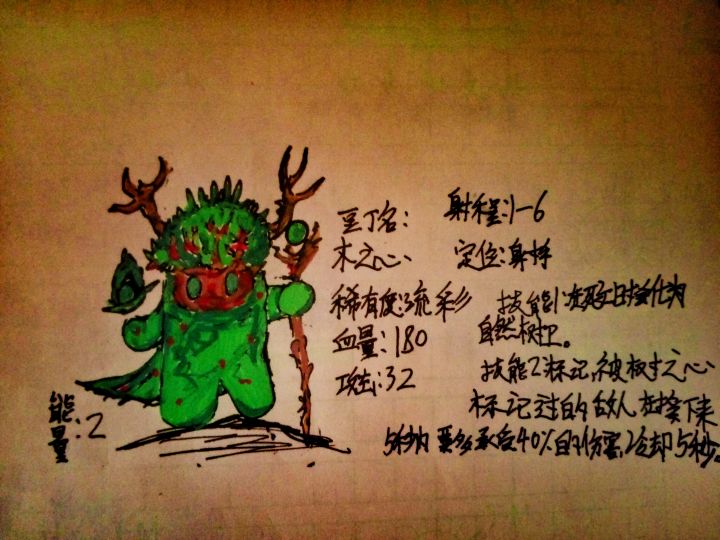 豆丁名：
木之心
稀有度：流彩
血量：180
攻击：32
射程：1-6
定位：射手
技能1：
化为
自然树卫。
技能2标记，被树之心
标记过的敌人在接下来
5秒内要多承受40%的伤害，冷却5秒。
能量：2